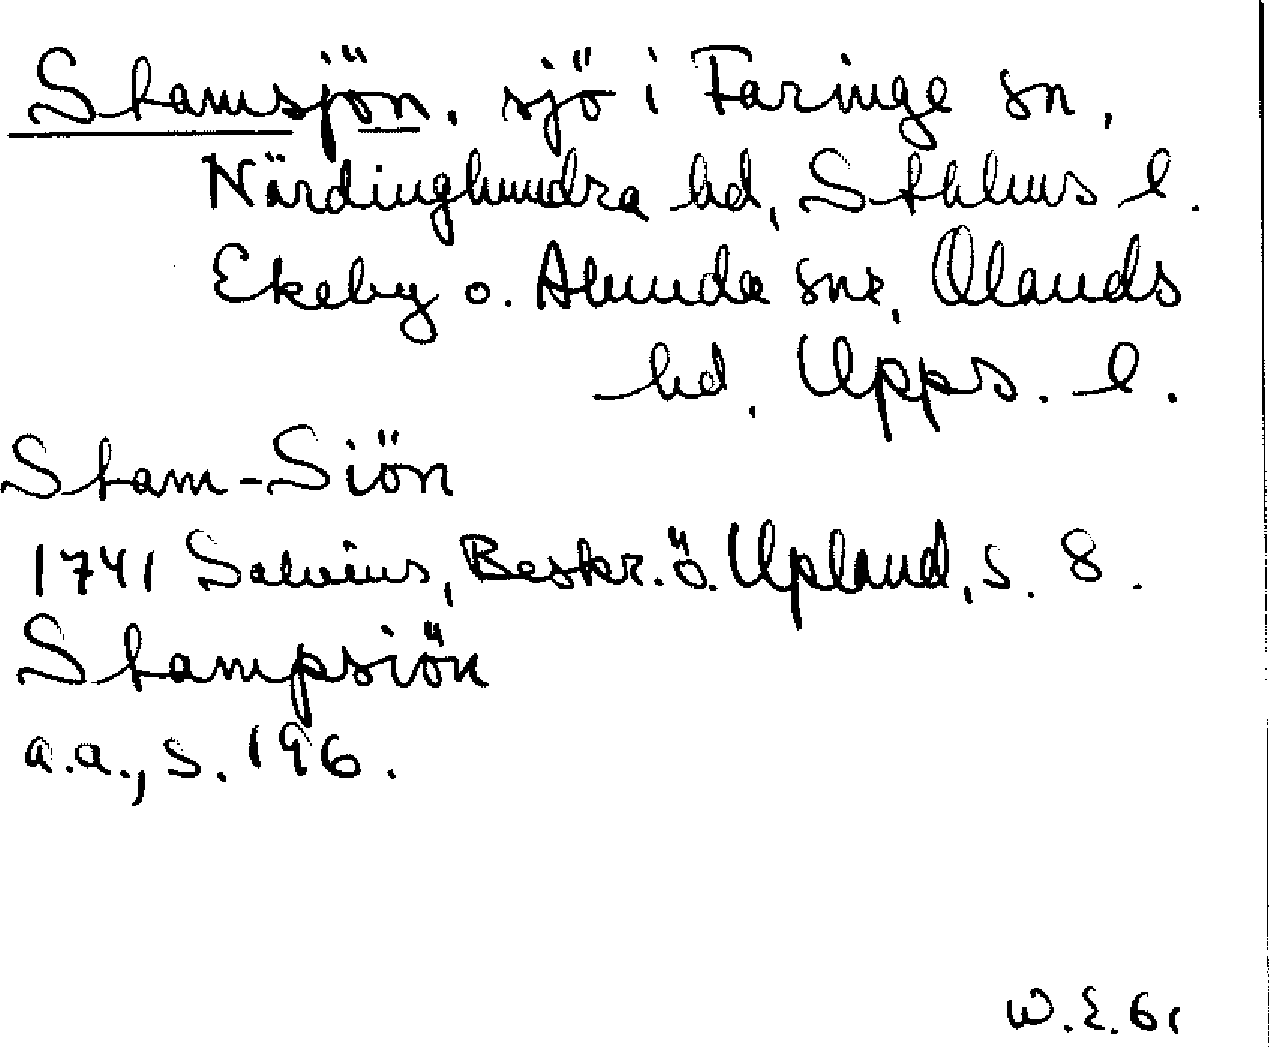 Stamsjön, sjö i Faringe sn,
Närdinghundra hd, Sthlms l.
Ekeby o. Alunda snr, Olands
hd, Upps. l.
Stam-Siön
1741 Salvius, Beskr. ö. Upland, s. 8.
Stampsiön
a.a., s. 196.
W.E. 61